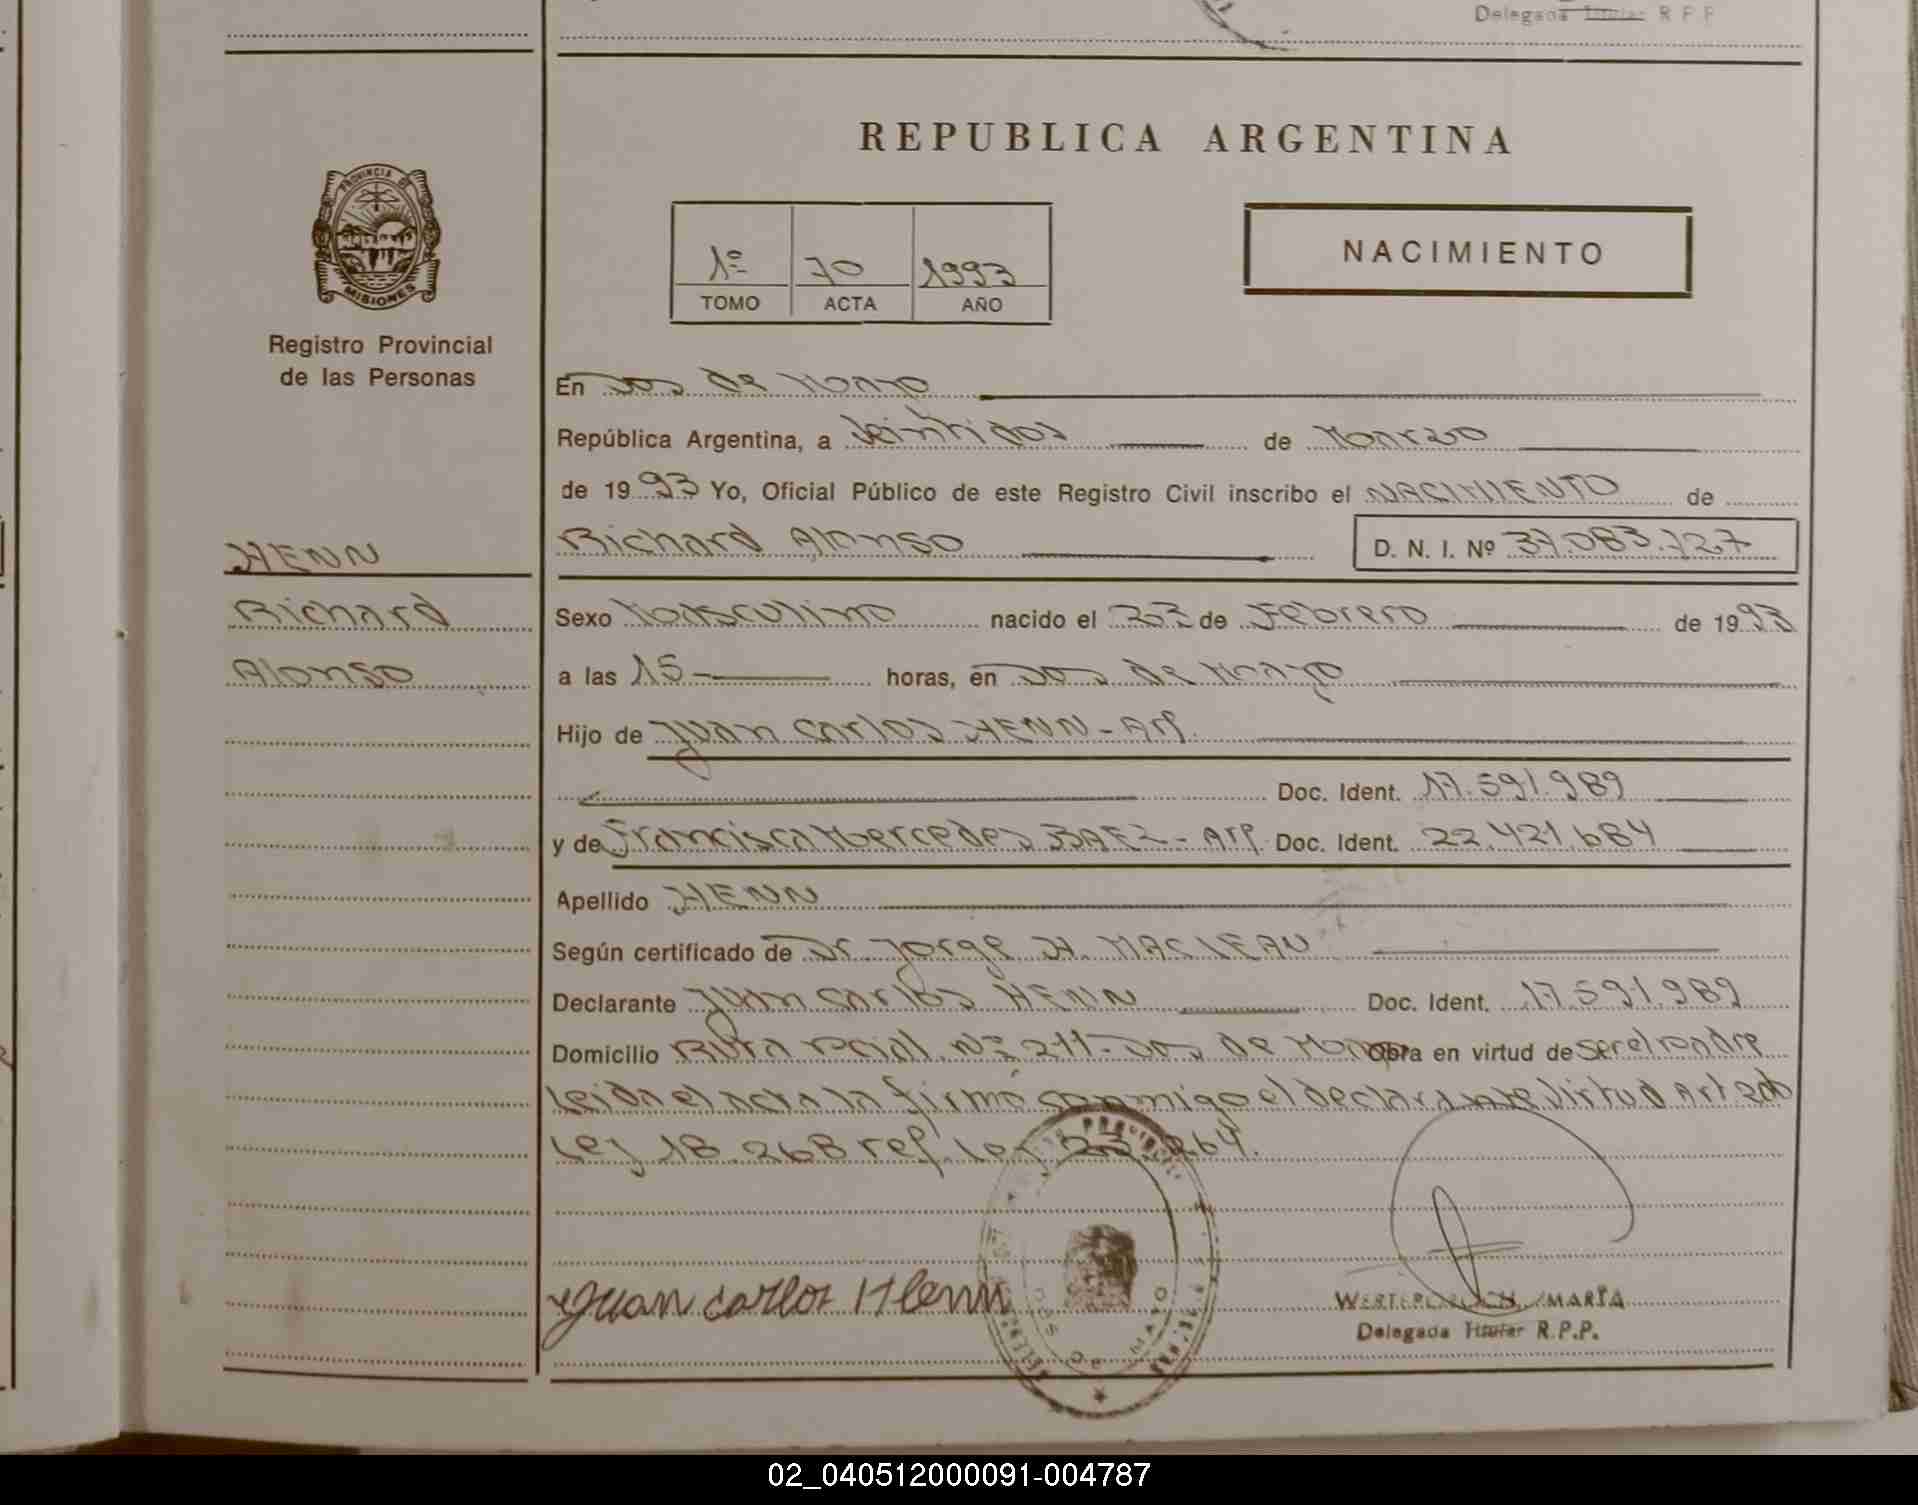 Delegada Titular R P P
REPUBLICA ARGENTINA
PROVINCIA DE
MISIONES
Registro Provincial
de las Personas
1º 70 1993
TOMO ACTA AÑO
NACIMIENTO
En Dos de Mayo
República Argentina, a Veintidos de Marzo
de 1993 Yo, Oficial Público de este Registro Civil inscribo el NACIMIENTO de
HENN
Richard Alonso D. N. I. Nº 37.083.727
Richard
Sexo Masculino nacido el 23 de Febrero de 1993
Alonso
a las 15 horas, en Dos de Mayo
Hijo de Juan Carlos HENN - Arg.
Doc. Ident. 17.591.989
y de Francisca Mercedes BAEZ - Arg. Doc. Ident. 22.421.684
Apellido HENN
Según certificado de Dr. Jorge H. MACLEAN
Declarante Juan Carlos HENN Doc. Ident. 17.591.989
Domicilio Ruta Pcial. Nº 211- Dos de Mayo Obra en virtud de ser el padre
Leida el acta la firmó conmigo el declarante Virtud Art
Ley 18.268 ref. Ley 23.264.
Juan Carlos Henn
DOS DE MAYO
MARIA
Delegada Titular R.P.P.
02_040512000091-004787